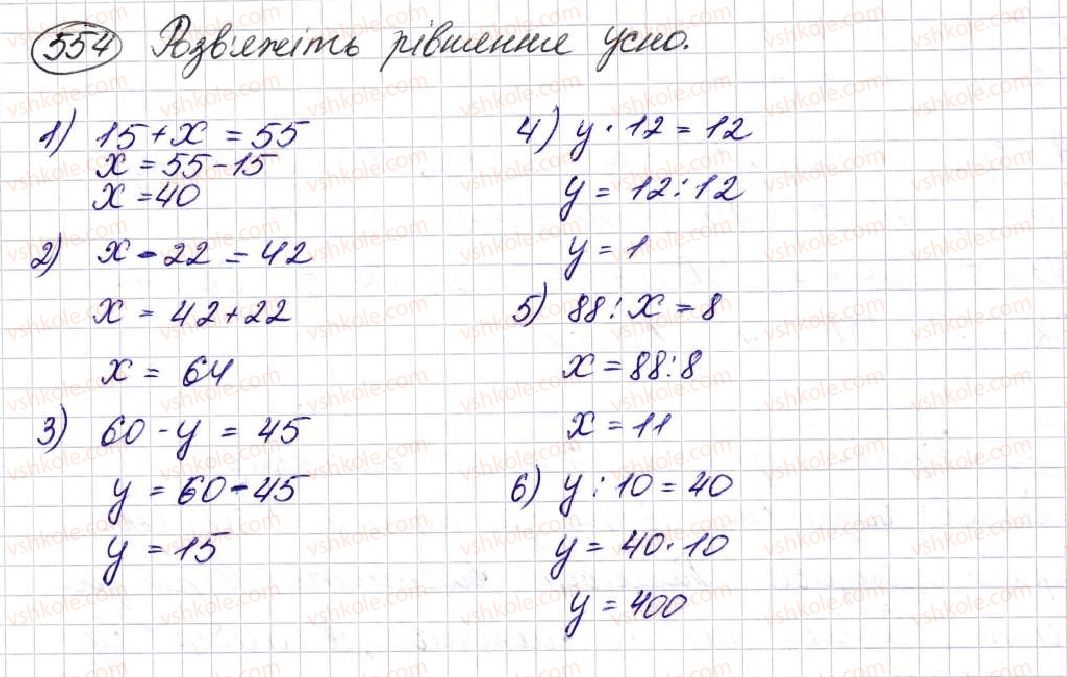 554 Розв'яжіть рівняння усно.
1) 15 + x = 55
x = 55 - 15
x = 40
2) x - 22 = 42
x = 42 + 22
x = 64
3) 60 - y = 45
y = 60 - 45
y = 15
4) y · 12 = 12
y = 12 : 12
y = 1
5) 88 : x = 8
x = 88 : 8
x = 11
6) y : 10 = 40
y = 40 · 10
y = 400
vshkole.com